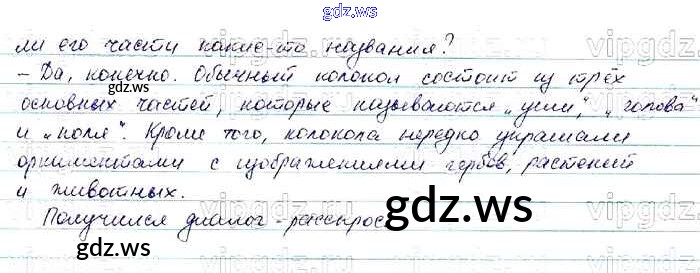 gdz.ws
ли его части какие-то названия?
- Да, конечно. Обычный колокол состоит из трёх
основных частей, которые называются „уши“, „голова“
и „поля“. Кроме того, колокола нередко украшали
орнаментами с изображениями гербов, растений
и животных.
Получился диалог-расспрос
gdz.ws
gdz.ws
gdz.ws
vipgdz.ws
vipgdz.ws